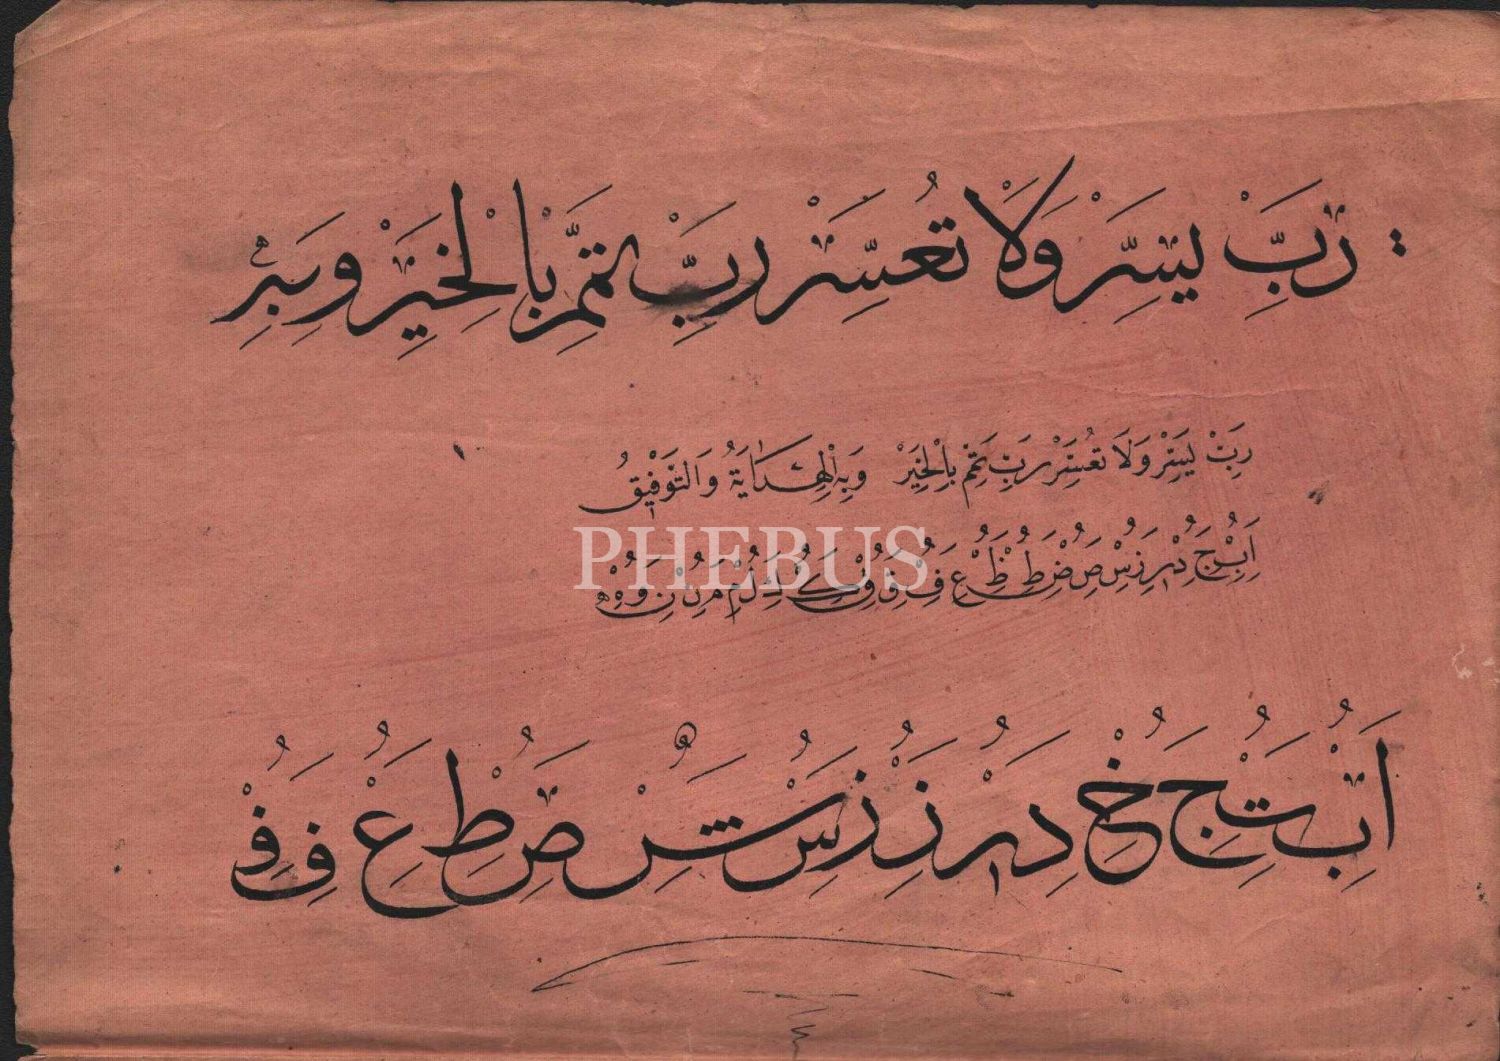 رَبِّ يَسِّرْ وَلَا تُعَسِّرْ رَبِّ تَمِّمْ بِالْخَيْرِ وَبِهِ
رَبِّ يَسِّرْ وَلَا تُعَسِّرْ رَبِّ تَمِّمْ بِالْخَيْرْ وَبِهِ الْهِدَايَةُ وَالتَّوْفِيقُ
PHEBUS
ا ب ج د ر ز س ص ض ط ظ ع ف ق و ك ل م ن و ه
ا ب ت ج خ د ر ز ز س ش ص ط ع ف ف